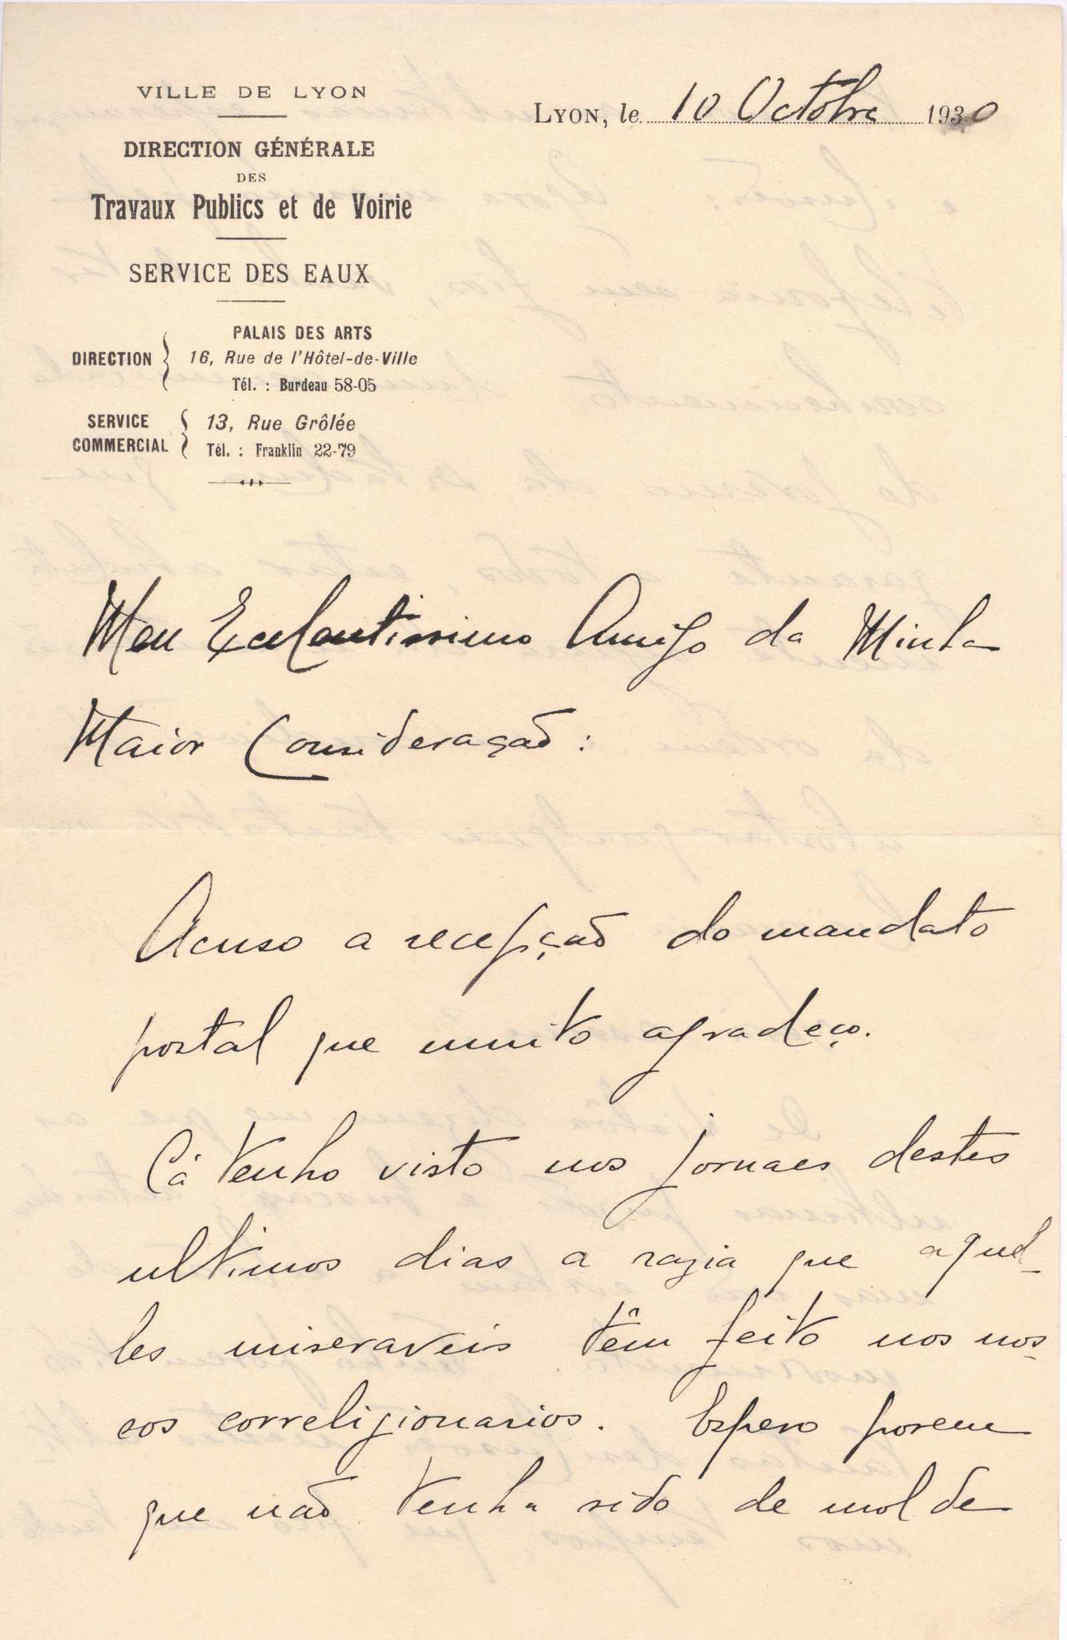 VILLE DE LYON
DIRECTION GÉNÉRALE
DES
Travaux Publics et de Voirie
SERVICE DES EAUX
DIRECTION
PALAIS DES ARTS
16, Rue de l'Hôtel-de-Ville
Tél. : Burdeau 58-05
SERVICE COMMERCIAL
13, Rue Grôlée
Tél. : Franklin 22-79
Lyon, le 10 Octobre 1930
Meu Excelentissimo Amigo da Minha
Maior Consideração:
Acuso a recepção do mandato
postal que muito agradeço.
Cá tenho visto nos jornaes destes
ultimos dias a razia que aquel-
les miseraveis têm feito nos nos-
sos correligionarios. Espero porem
que não tenha sido de molde